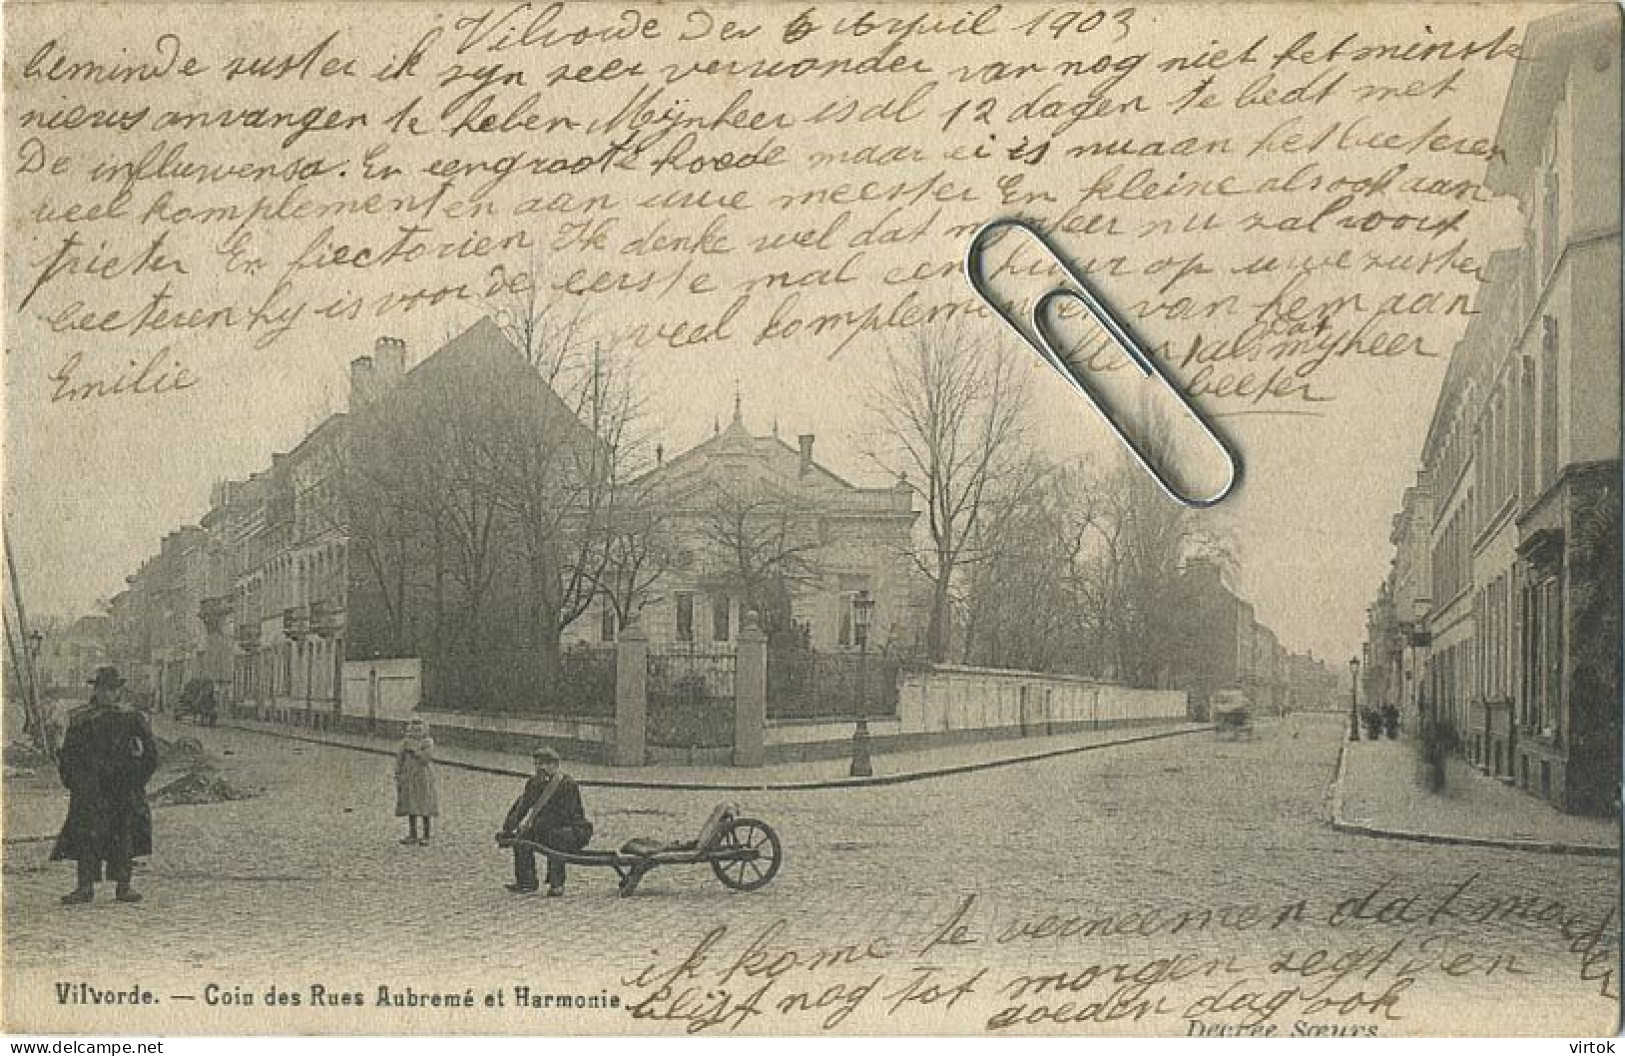 Vilvorde Den 6 April 1903
beminde zuster ik zyn zeer verwonder van nog niet het minste
nieuws onvangen te heben Mijnheer is al 12 dagen te bedt met
De influwensa. En eengroote koede maar ei is nu aan het beeteren
veel komplementen aan uwe meester En kleine als ook aan
En fiectorien Ik denke wel dat myheer nu zal voort
beeteren hy is voor de eerste mal een huur op uwe zuster
veel komplemen van hem aan
Emilie
als myheer
beeter
ik kome te verneemen dat moeder
blijft nog tot morgen zegt Den
goeden dag ook
Vilvorde. — Coin des Rues Aubremé et Harmonie
Decrée Sœurs.
virtok